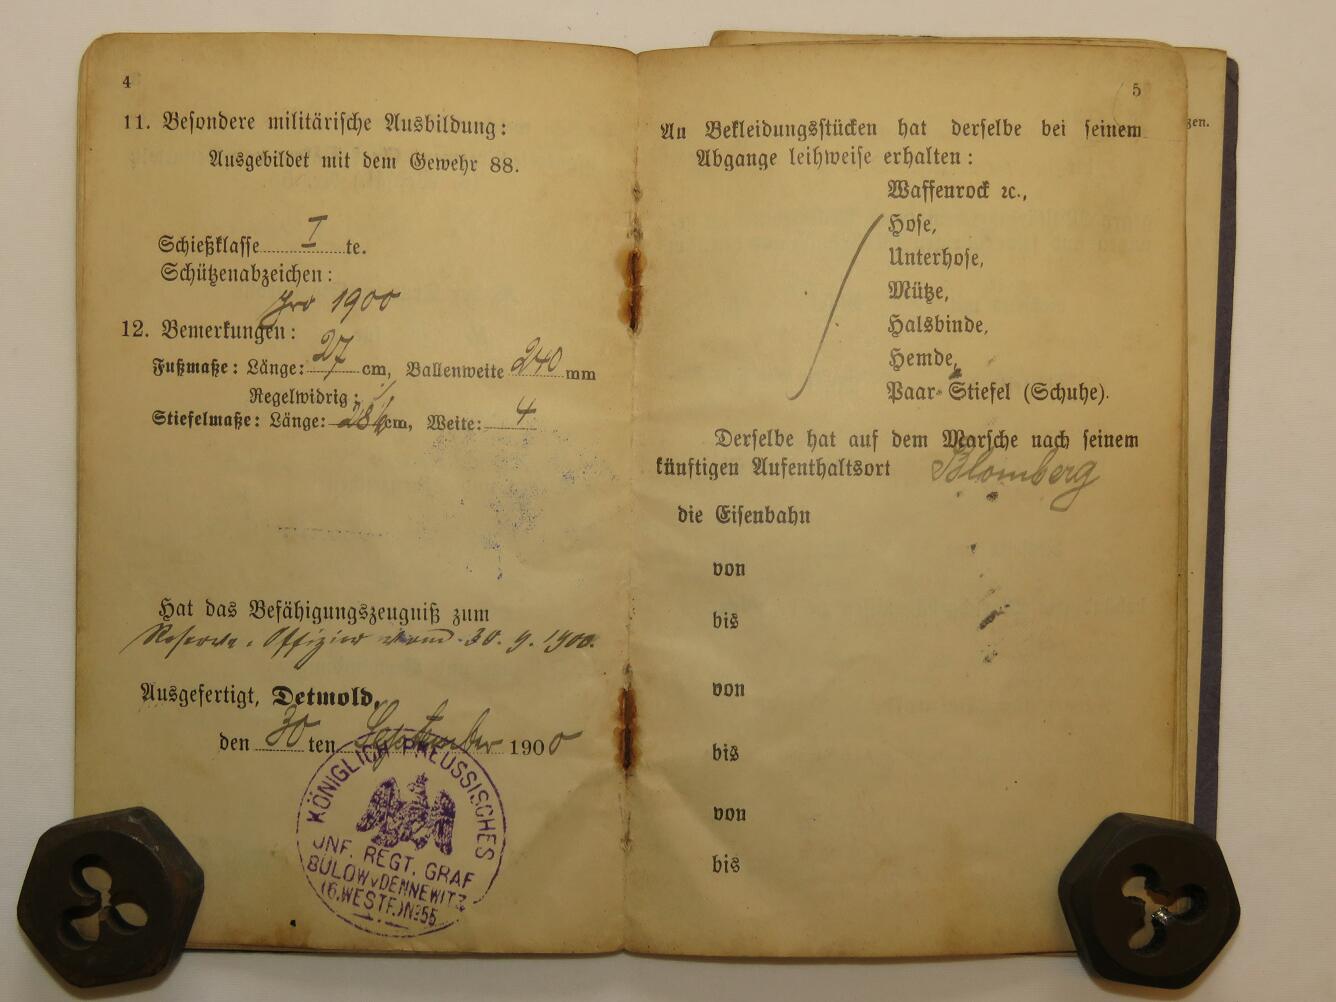 4
11. Besondere militärische Ausbildung:
Ausgebildet mit dem Gewehr 88.
Schießklasse I te.
Schützenabzeichen:
1900
12. Bemerkungen:
Fußmaße: Länge: 27 cm, Ballenweite 240 mm
Regelwidrig:
Stiefelmaße: Länge: 28½ cm, Weite: 4
Hat das Befähigungszeugniß zum
Reserve-Offizier vom 30. 9. 1900.
Ausgefertigt, Detmold,
den 30 ten September 1900
KÖNIGLICH PREUSSISCHES
JNF. REGT. GRAF
BÜLOW v DENNEWITZ
(6. WESTF.) No 55
5
An Bekleidungsstücken hat derselbe bei seinem
Abgange leihweise erhalten:
Waffenrock ꝛc.,
Hose,
Unterhose,
Mütze,
Halsbinde,
Hemde,
Paar Stiefel (Schuhe).
Derselbe hat auf dem Marsche nach seinem
künftigen Aufenthaltsort Blomberg
die Eisenbahn
von
bis
von
bis
von
bis
zen.